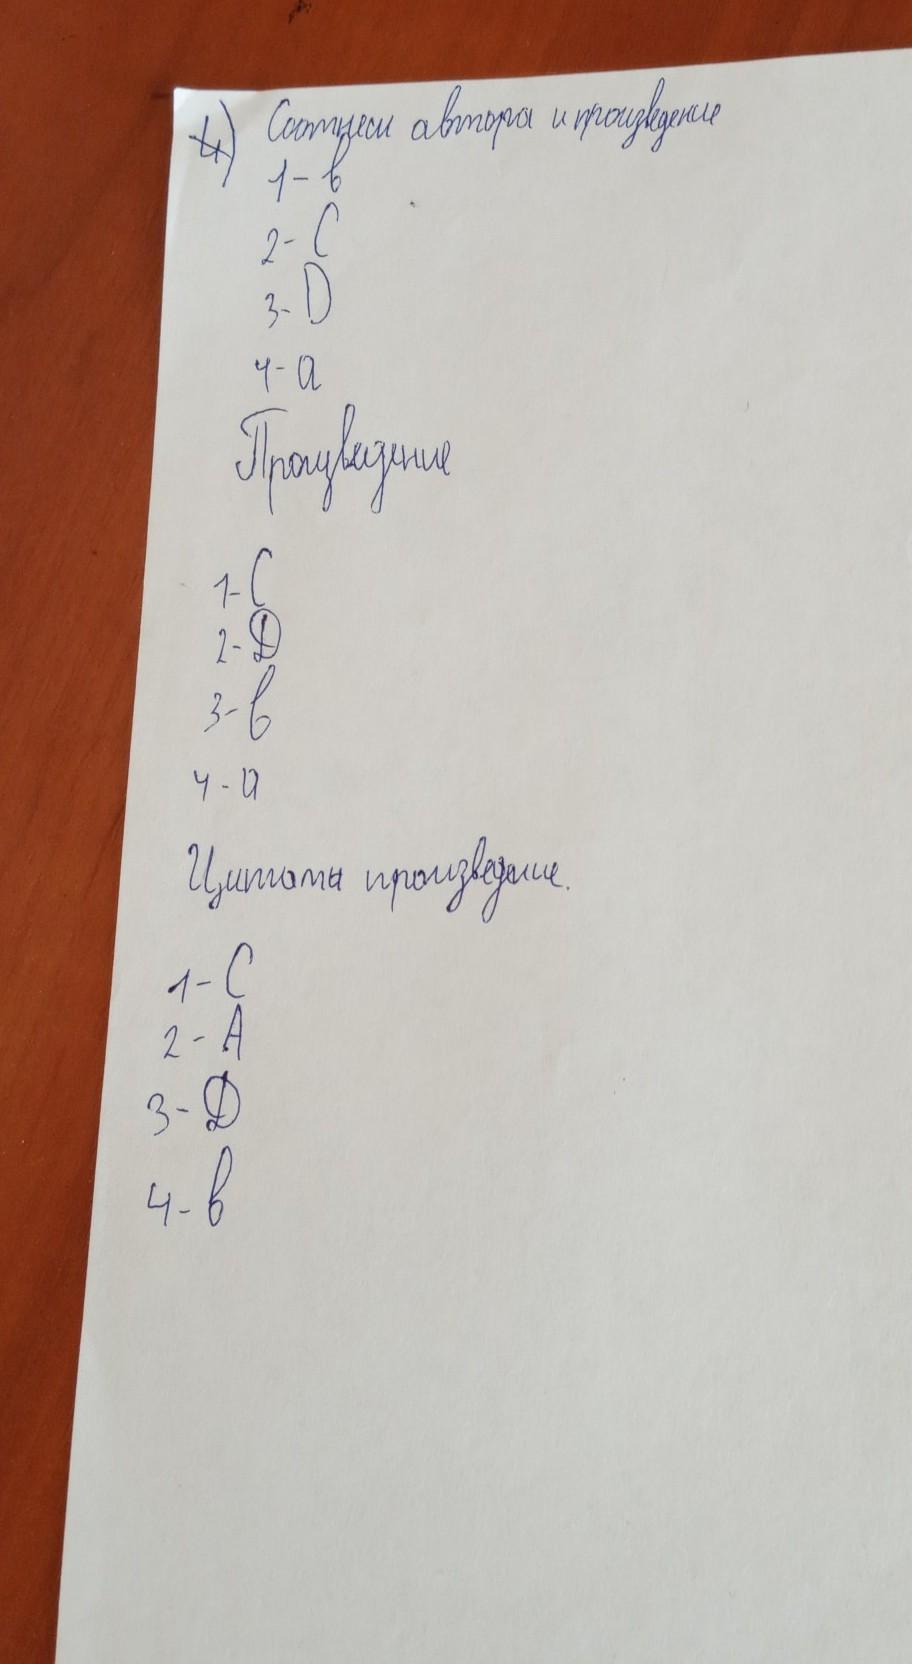 4) Соотнеси автора и произведение
1- в
2- C
3- D
4- a
Произведение
1- C
2- D
3- в
4 - a
Цитаты произведение.
1- C
2 - A
3- D
4- в